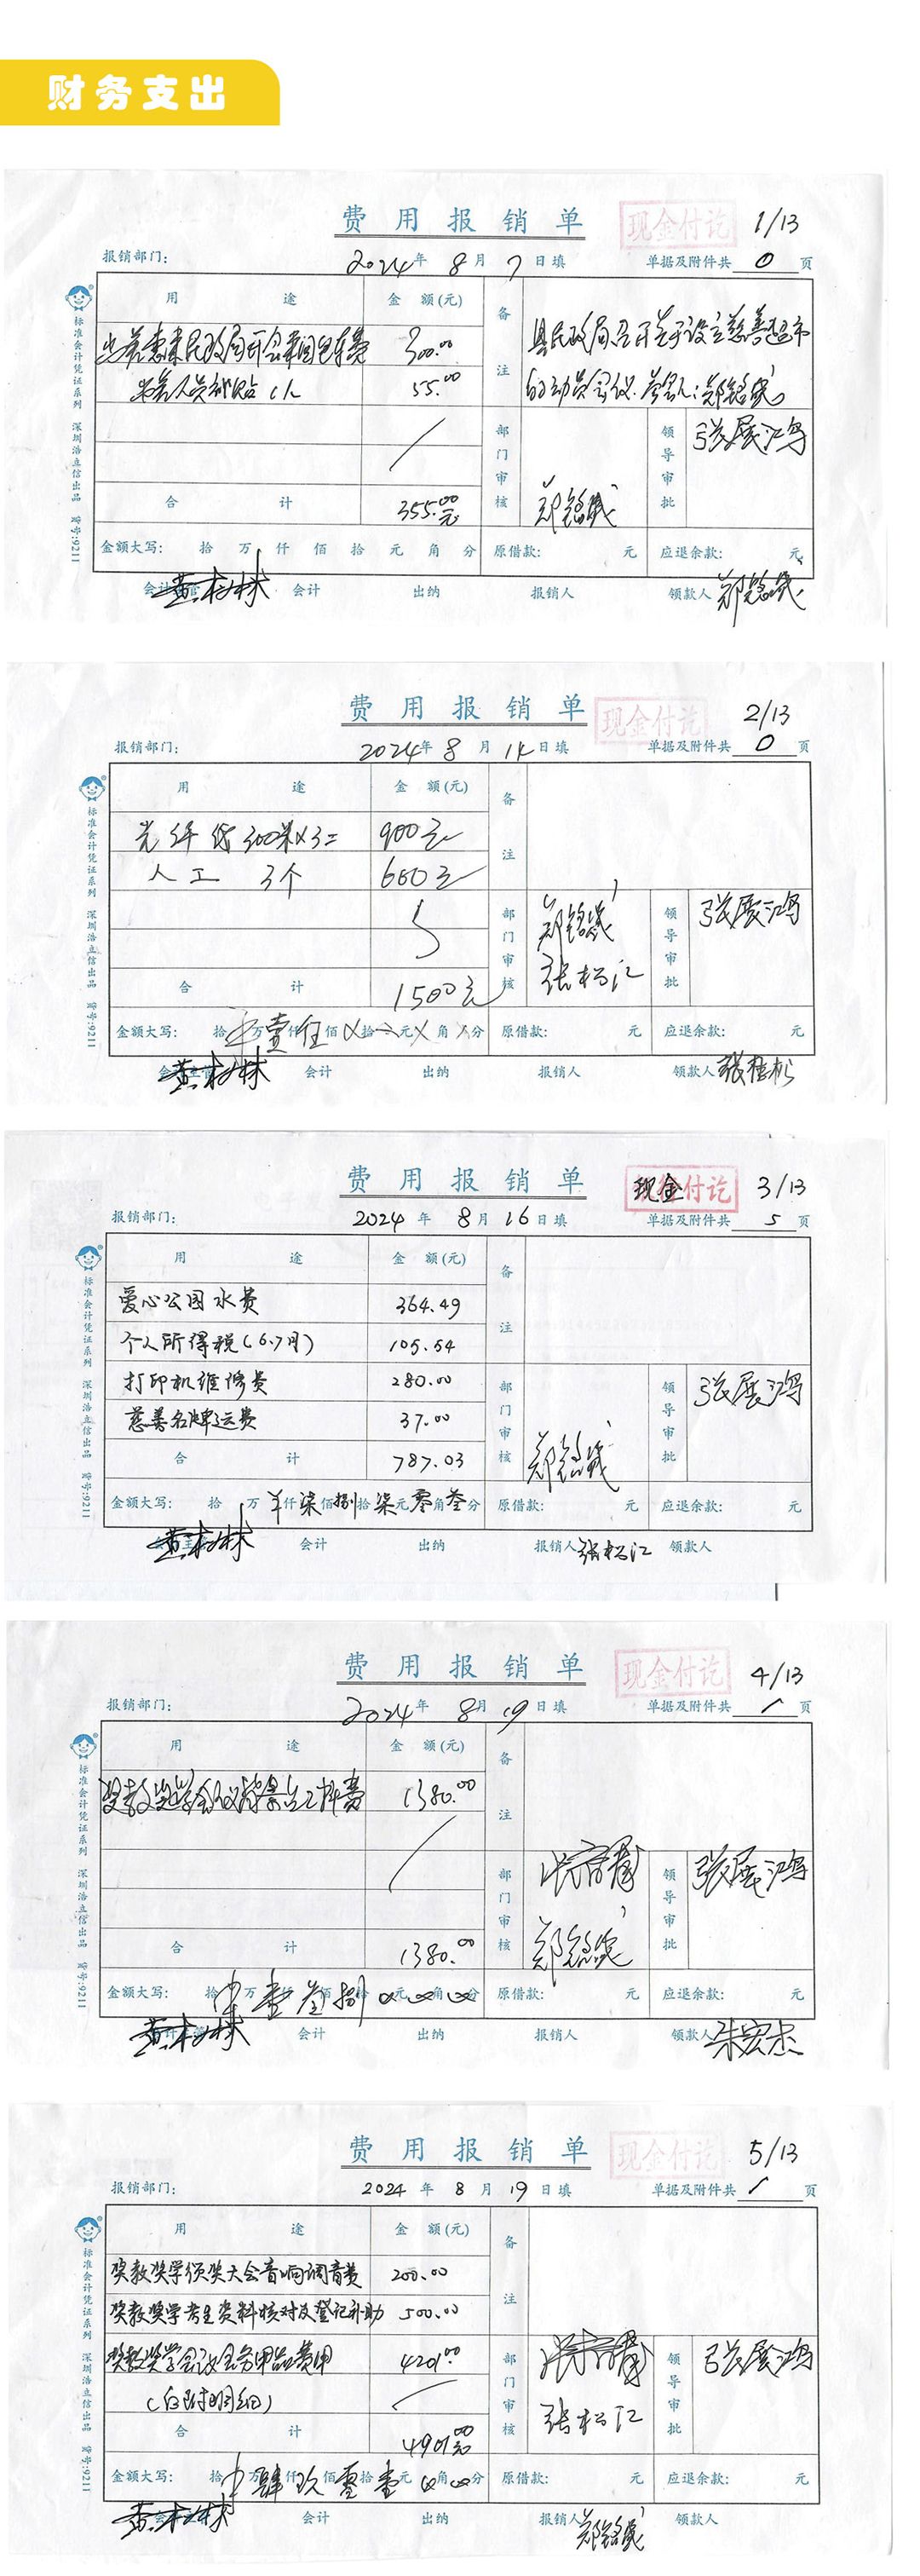 财务支出
费用报销单
现金付讫
1/13
报销部门:
2024年8月7日填
单据及附件共 0 页
用途 金额(元) 备注
出差惠来民政局开会来回包车费 300.00
出差人员补贴 1人 55.00
县民政局召开关于设立慈善超市
的动员会议.参会人:郑铭城
部门审核 郑铭城
领导审批 张展鸿
合计 355.00元
金额大写: 拾万仟佰拾元角分 原借款: 元 应退余款: 元
会计主管 黄树林 会计 出纳 报销人 领款人 郑铭城
标准会计凭证系列 深圳浩立信出品 货号:9211
费用报销单
现金付讫
2/13
报销部门:
2024年8月14日填
单据及附件共 0 页
用途 金额(元) 备注
光纤线300米x3= 900元
人工 3个 600元
部门审核 郑铭城 张松江
领导审批 张展鸿
合计 1500元
金额大写: 拾万壹仟伍佰拾元角分 原借款: 元 应退余款: 元
会计主管 黄树林 会计 出纳 报销人 领款人 张桂松
标准会计凭证系列 深圳浩立信出品 货号:9211
费用报销单
现金付讫
3/13
报销部门:
2024年8月16日填
单据及附件共 5 页
用途 金额(元) 备注
爱心公园水费 364.49
个人所得税(6.7月) 105.54
打印机维修费 280.00
慈善名牌运费 37.00
部门审核 郑铭城
领导审批 张展鸿
合计 787.03
金额大写: 拾万仟柒佰捌拾柒元零角叁分 原借款: 元 应退余款: 元
会计主管 黄树林 会计 出纳 报销人 张松江 领款人
标准会计凭证系列 深圳浩立信出品 货号:9211
费用报销单
现金付讫
4/13
报销部门:
2024年8月19日填
单据及附件共 1 页
用途 金额(元) 备注
奖教奖学会议背景工料费 1380.00
部门审核 郑铭城
领导审批 张展鸿
合计 1380.00
金额大写: 拾万壹仟叁佰捌拾元角分 原借款: 元 应退余款: 元
会计主管 黄树林 会计 出纳 报销人 领款人 朱宏杰
标准会计凭证系列 深圳浩立信出品 货号:9211
费用报销单
现金付讫
5/13
报销部门:
2024年8月19日填
单据及附件共 1 页
用途 金额(元) 备注
奖教奖学颁奖大会音响调音费 200.00
奖教奖学考生资料核对及登记补助 500.00
奖教奖学会议会务用品费用 4201.00
(后附明细)
部门审核 张松江
领导审批 张展鸿
合计 4901.00元
金额大写: 拾万肆仟玖佰零拾壹元角分 原借款: 元 应退余款: 元
会计主管 黄树林 会计 出纳 报销人 郑铭城 领款人
标准会计凭证系列 深圳浩立信出品 货号:9211